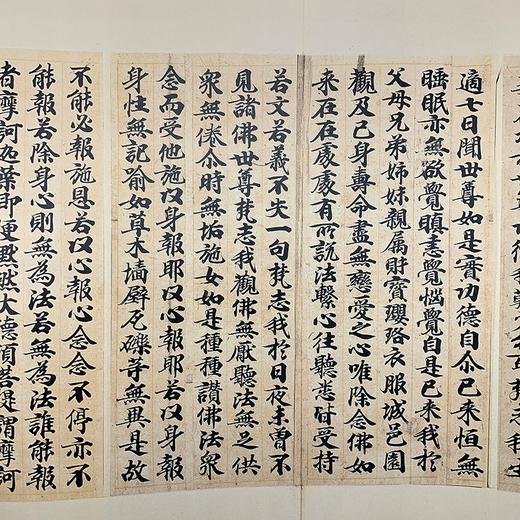 適七日聞世尊如是實功德自尒已來恒無
睡眠亦無欲覺瞋恚覺惱覺自是已來我於
父母兄弟姊妹親屬財寶瓔珞衣服城邑園
觀及己身壽命盡無戀愛之心唯除念佛如
來在在處處有所說法繫心往聽悉皆受持
若文若義不失一句梵志我於日夜未曾不
見諸佛世尊梵志我觀佛無厭聽法無乏供
衆無倦尒時無垢施女如是種種讚佛法衆
念而受他施以身報耶以心報耶若以身報
身性無記喻如草木墻壁瓦礫等無異是故
不能必報施恩若以心報心念念不停亦不
能報若除身心則無為法若無為法誰能報
者摩訶迦葉即便默然大德須菩提謂摩訶